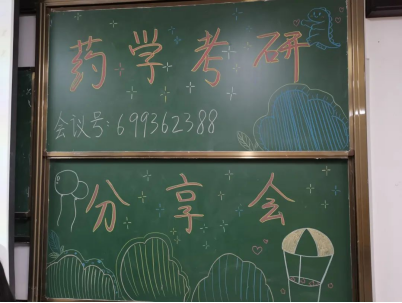 药学考研
会议号:699362388
分享会